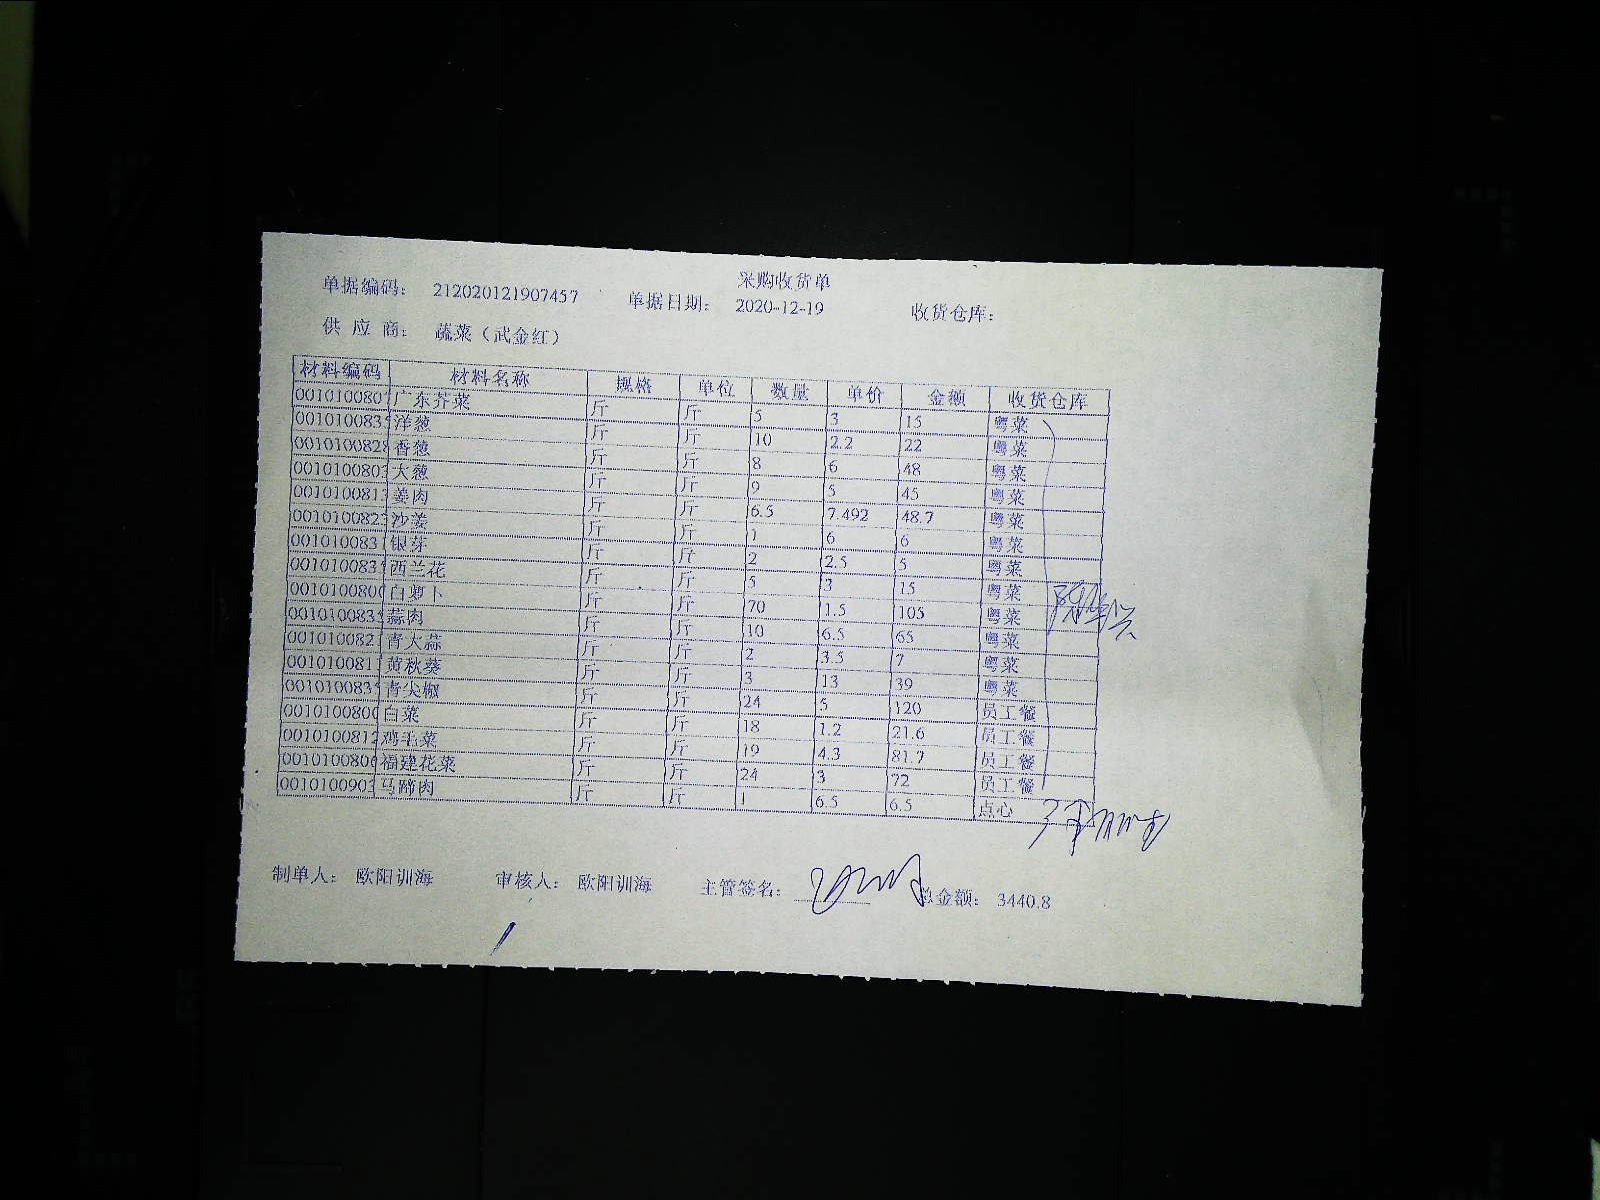 采购收货单
单据编码： 212020121907457 单据日期： 2020-12-19 收货仓库：
供 应 商： 蔬菜（武金红）
材料编码 材料名称 规格 单位 数量 单价 金额 收货仓库
0010100807 广东芥菜 斤 斤 5 3 15 粤菜
001010083 洋葱 斤 斤 10 2.2 22 粤菜
0010100828 香葱 斤 斤 8 6 48 粤菜
0010100803 大葱 斤 斤 9 5 45 粤菜
0010100813 姜肉 斤 斤 6.5 7.492 48.7 粤菜
001010082 沙姜 斤 斤 1 6 6 粤菜
0010100831 银芽 斤 斤 2 2.5 5 粤菜
001010083 西兰花 斤 斤 5 3 15 粤菜
0010100800 白萝卜 斤 斤 70 1.5 105 粤菜
001010083 蒜肉 斤 斤 10 6.5 65 粤菜
0010100821 青大蒜 斤 斤 2 3.5 7 粤菜
0010100811 黄秋葵 斤 斤 3 13 39 粤菜
001010083 青尖椒 斤 斤 24 5 120 员工餐
0010100800 白菜 斤 斤 18 1.2 21.6 员工餐
0010100812 鸡毛菜 斤 斤 19 4.3 81.7 员工餐
0010100806 福建花菜 斤 斤 24 3 72 员工餐
0010100903 马蹄肉 斤 斤 1 6.5 6.5 点心
制单人： 欧阳训海 审核人： 欧阳训海 主管签名： 总金额： 3440.8